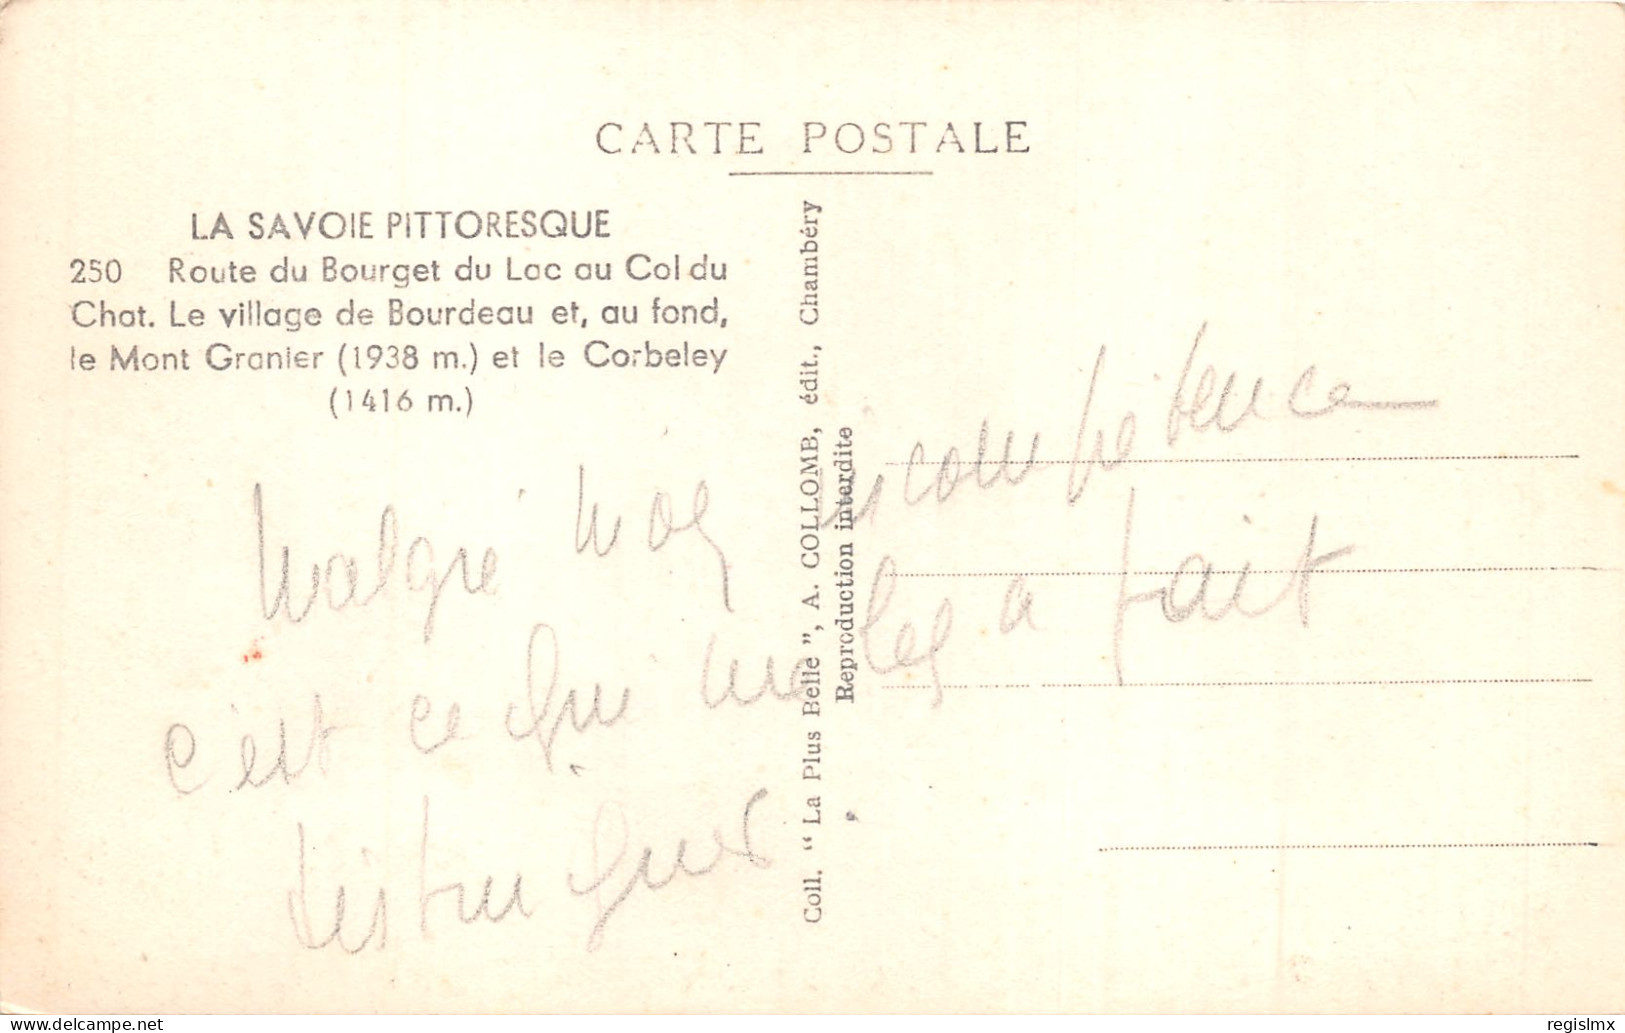 CARTE POSTALE
LA SAVOIE PITTORESQUE
250 Route du Bourget du Lac au Col du
Chat. Le village de Bourdeau et, au fond,
le Mont Granier (1938 m.) et le Corbeley
(1416 m.)
Coll. “ La Plus Belle ”, A. COLLOMB, édit., Chambéry
Reproduction interdite
Malgré mon incompétence
c'est ce que a fait
distinguer
www.delcampe.net
regislmx